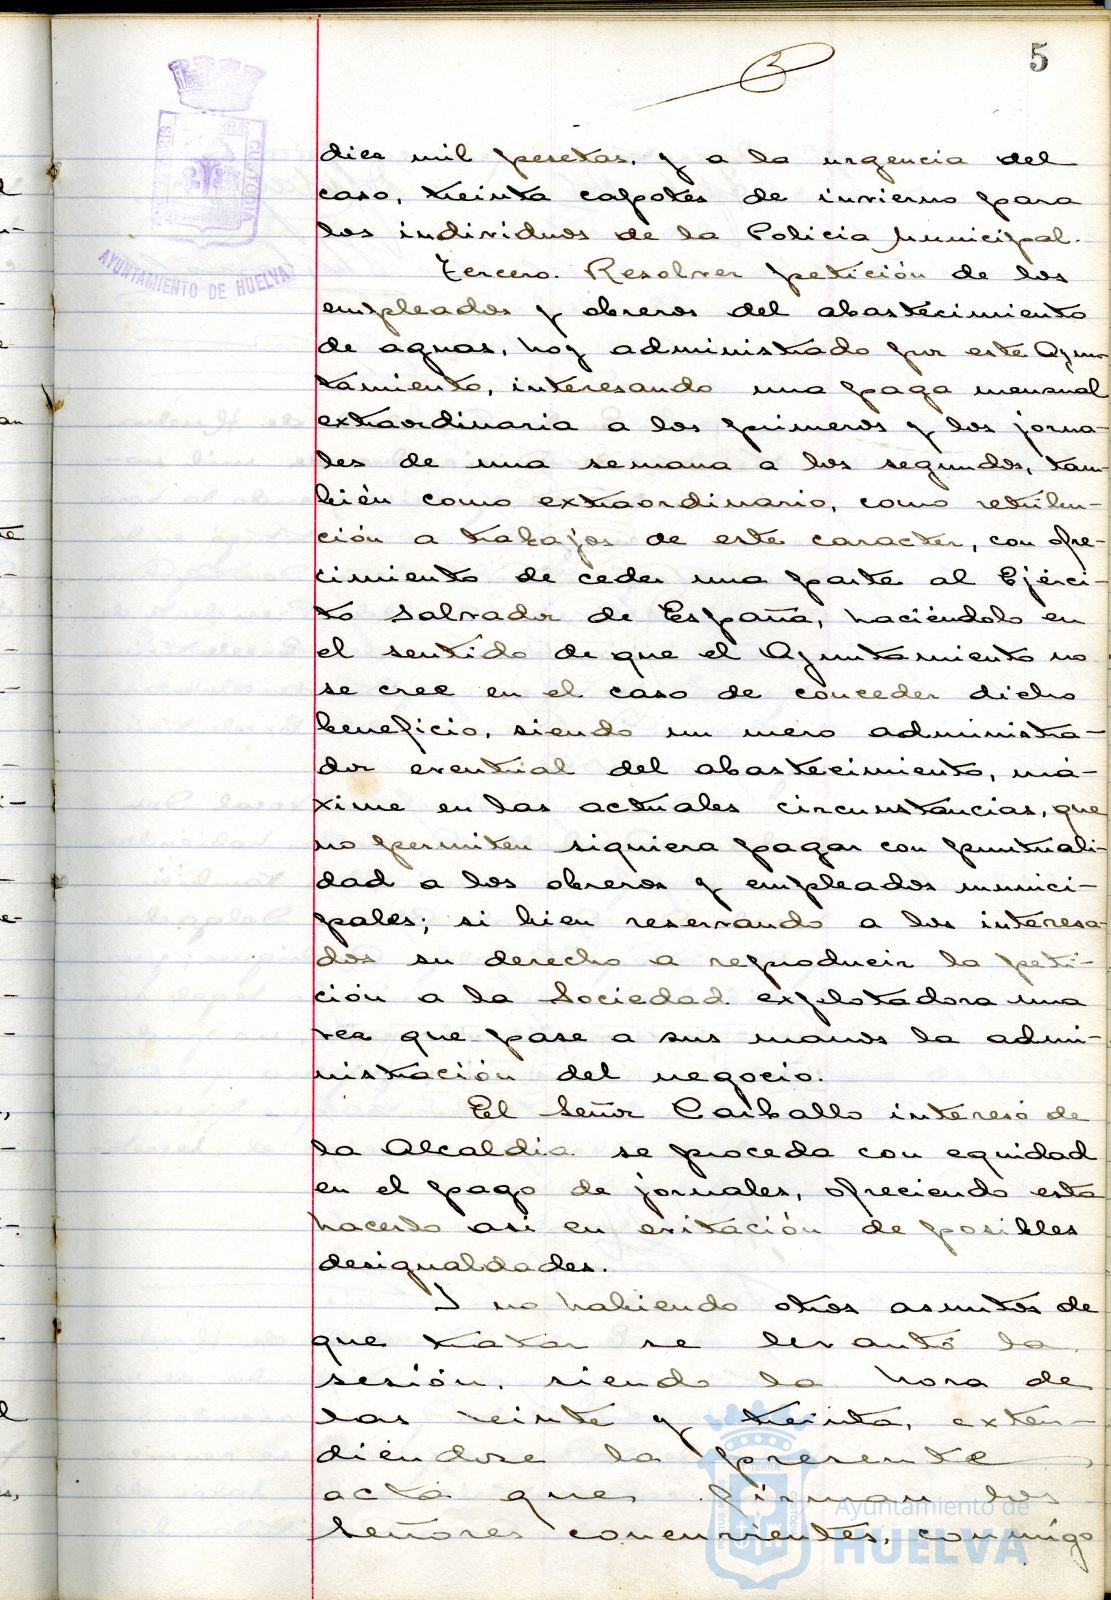 5
diez mil pesetas, y a la urgencia del
caso, treinta capotes de invierno para
los individuos de la Policia Municipal.
Tercero. Resolver petición de los
empleados y obreros del abastecimiento
de aguas, hoy administrado por este Ayun-
tamiento, interesando una paga mensual
extraordinaria a los primeros y los jorna-
les de una semana a los segundos, tam-
bién como extraordinario, como retribu-
ción a trabajos de este caracter, con ofre-
cimiento de ceder una parte al Ejérci-
to Salvador de España, haciéndolo en
el sentido de que el Ayuntamiento no
se cree en el caso de conceder dicho
beneficio, siendo un mero administra-
dor eventual del abastecimiento, má-
xime en las actuales circunstancias, que
no permiten siquiera pagar con puntuali-
dad a los obreros y empleados munici-
pales; si bien reservando a los interesa-
dos su derecho a reproducir la peti-
ción a la Sociedad explotadora una
vez que pase a sus manos la admi-
nistración del negocio.
El Señor Carballo interesó de
la Alcaldia se proceda con equidad
en el pago de jornales, ofreciendo esta
hacerlo asi en evitación de posibles
desigualdades.
Y no habiendo otros asuntos de
que tratar se levantó la
sesión, siendo la hora de
las veinte y treinta, exten-
diéndose la presente
acta que firman los
Señores concurrentes, conmigo
AYUNTAMIENTO DE HUELVA
Ayuntamiento de
HUELVA